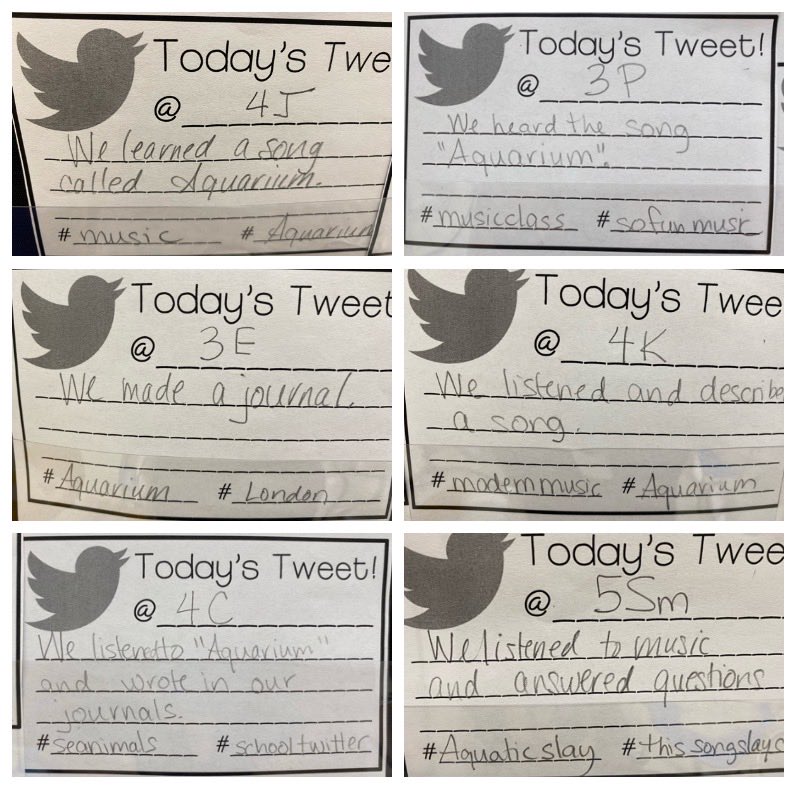 Today's Twe
@ 4J
We learned a song
called Aquarium.
#music #Aquarium
Today's Tweet!
@ 3P
We heard the song
"Aquarium".
#musicclass #sofunmusic
Today's Tweet
@ 3E
We made a journal.
#Aquarium #London
Today's Twee
@ 4K
We listened and describe
a song.
#modernmusic #Aquarium
Today's Tweet!
@ 4C
We listened to "Aquarium"
and wrote in our
journals.
#seanimals #schooltwitter
Today's Twee
@ 5Sm
We listened to music
and answered questions
#Aquaticslay #thissongslays